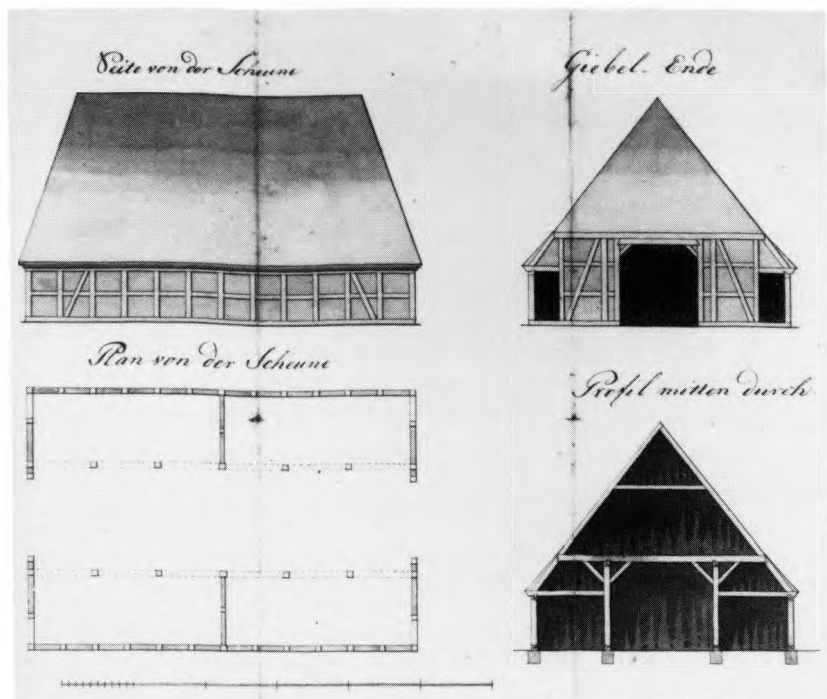 Seite von der Scheune
Giebel-Ende
Plan von der Scheune
Profil mitten durch.